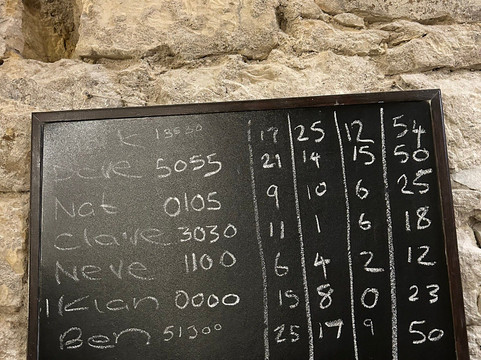 13530 17 25 12 54
Dave 5055 21 14 15 50
Nat 0105 9 10 6 25
Claire 3030 11 1 6 18
Neve 1100 6 4 2 12
Kian 0000 15 8 0 23
Ben 51300 25 17 9 50